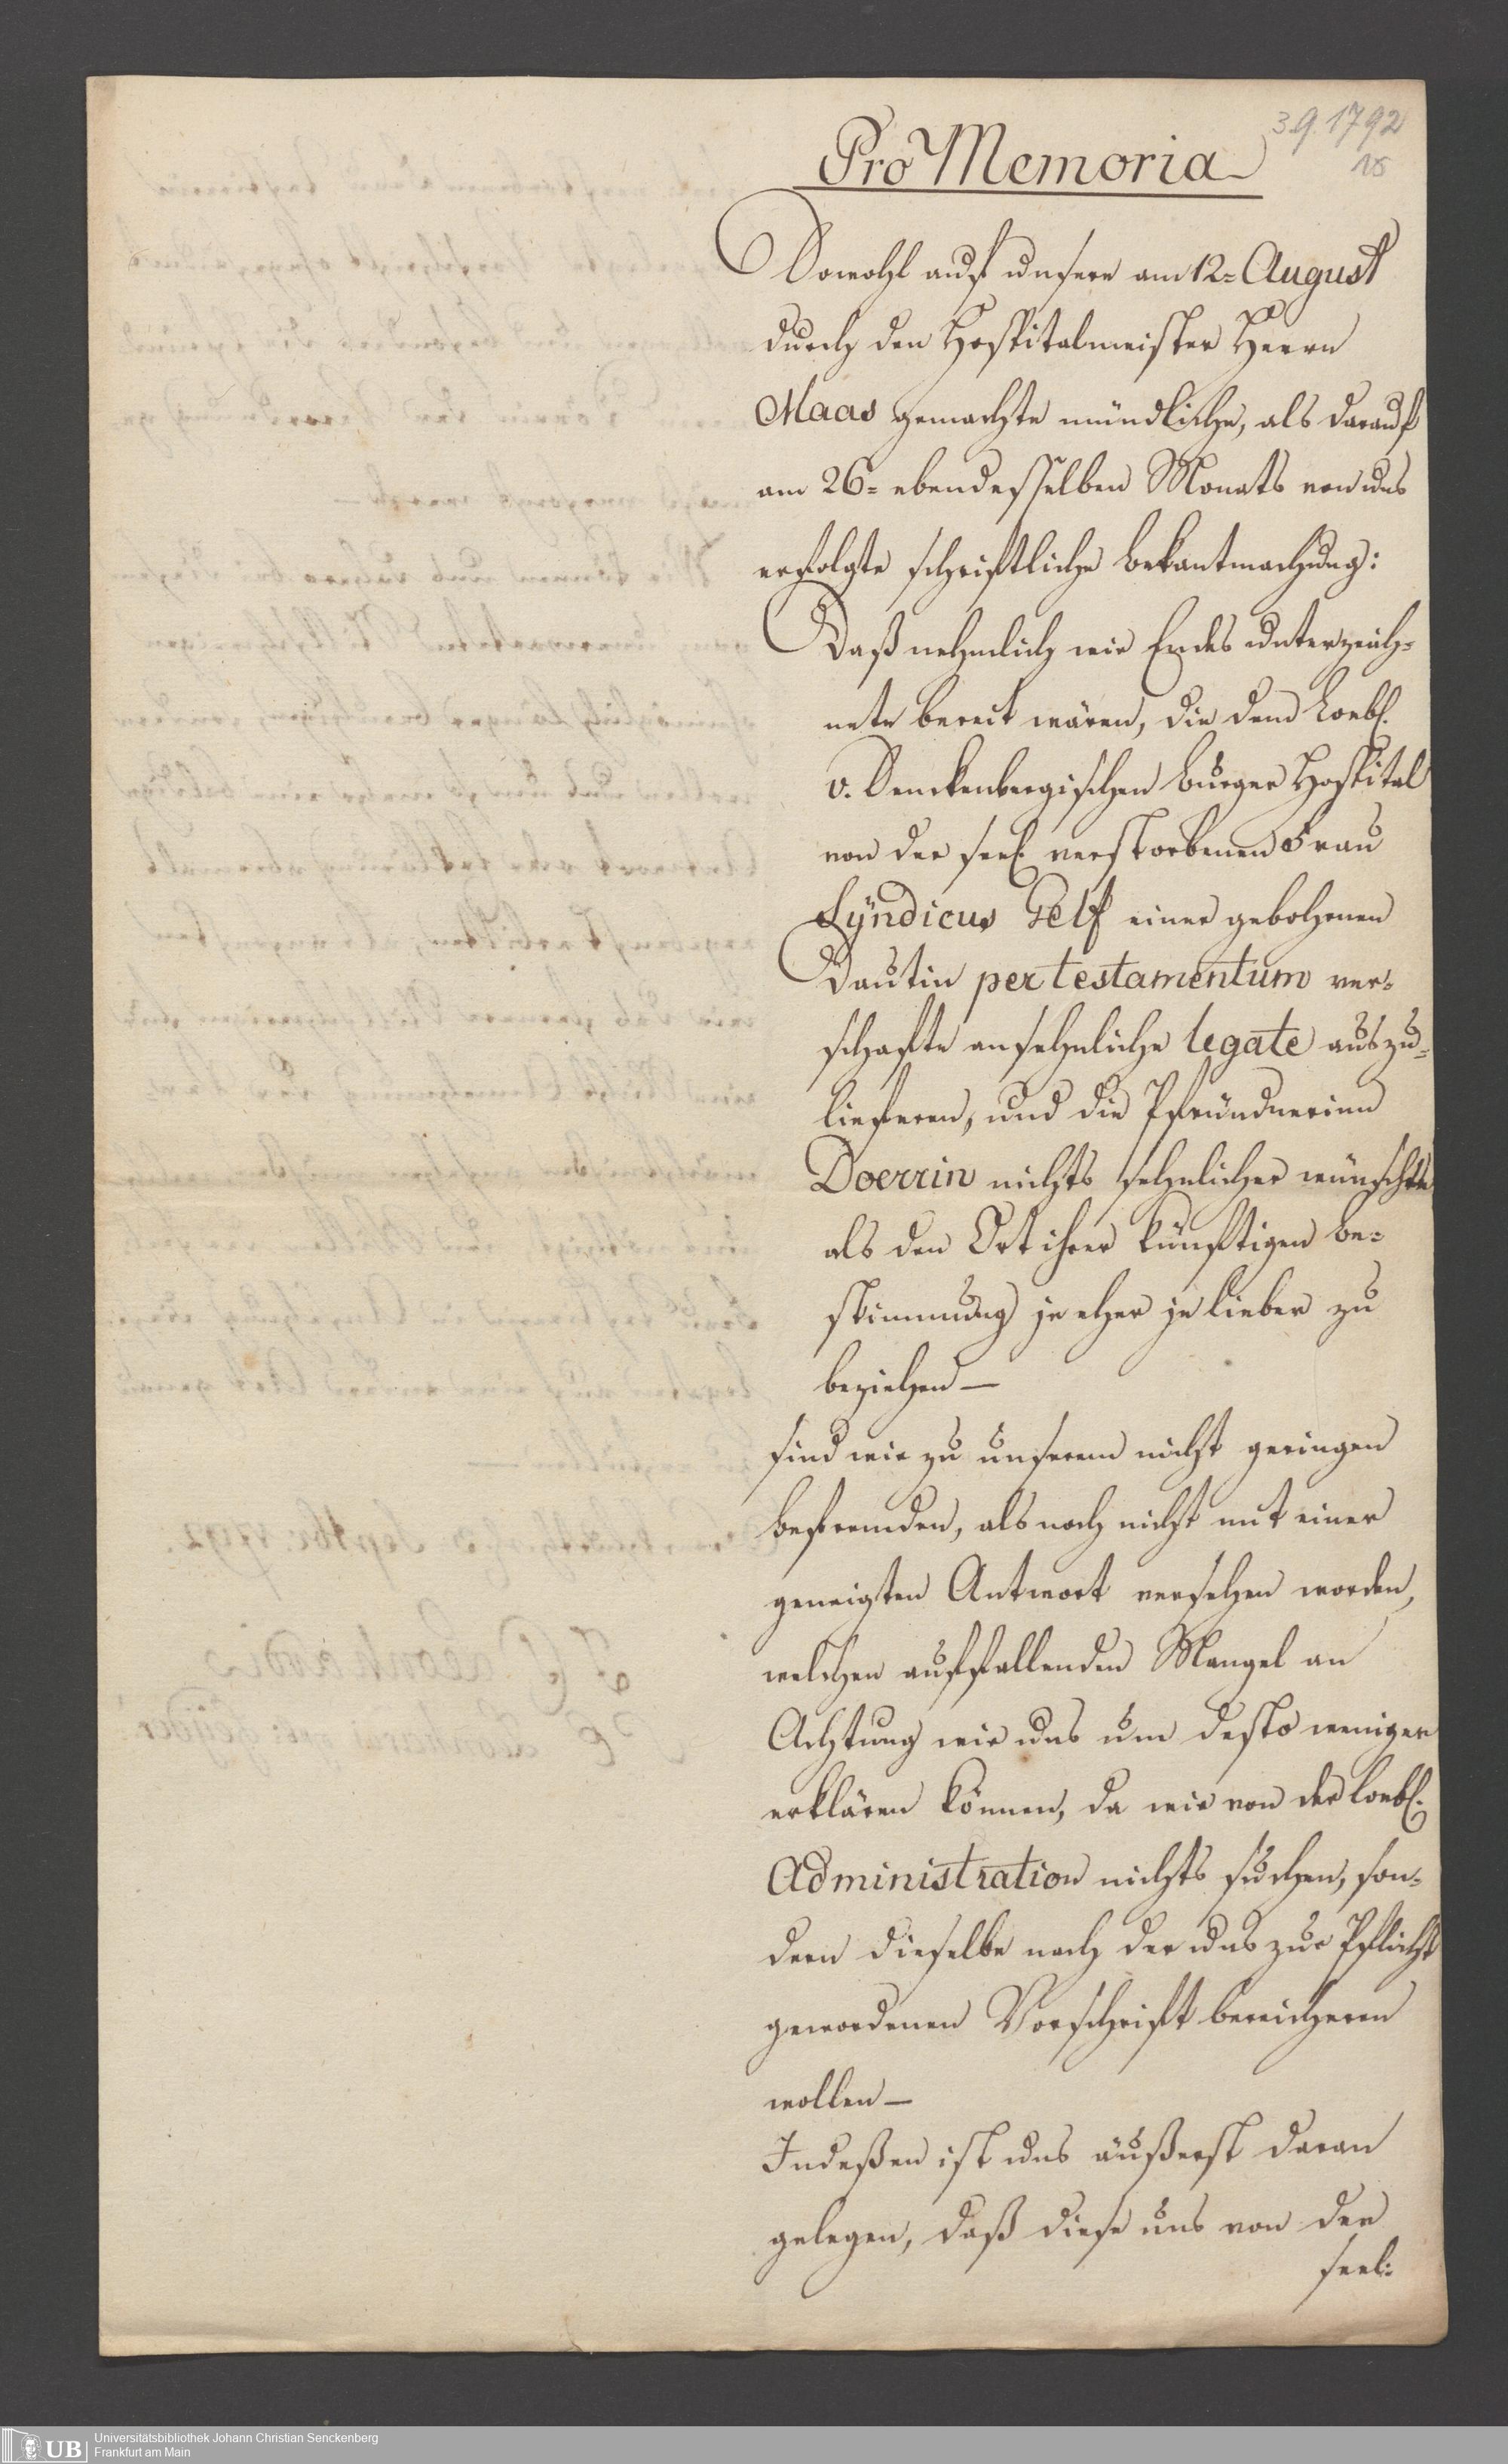 3.9.1792
18
Pro Memoria
Sowohl auf unsere am 12= August
durch den Hospitalmeister Herrn
Maas gemachte mündliche, als darauf
am 26= ebendesselben Monats von uns
erfolgte schriftliche bekantmachung:
Daß nehmlich wir Endes unterzeich=
nete bereit wären, die dem Loebl.
v. Senckenbergischen burger Hospital
von der seel. verstorbenen Frau
Syndicus Self einer gebohrnen
Dautin per testamentum ver=
schafte ansehnliche legate auszu=
lieferen, und die Pfründnerinn
Doerrin nichts sehnlicher wünschte
als den Ort ihrer künftigen be=
stimmung je eher je lieber zu
beziehen —
sind wir zu unserem nicht geringen
befremden, als noch nicht mit einer
geneigten Antwort versehen worden,
welchen auffallenden Mangel an
Achtung wir uns um desto weniger
erklären können, da wir von der loebl.
Administration nichts suchen, son=
dern dieselbe nach der uns zur Pflicht
gewordenen Vorschrift bereicheren
wollen —
Indeßen ist uns äußerst daran
gelegen, daß diese uns von der
seel:
UB
Universitätsbibliothek Johann Christian Senckenberg
Frankfurt am Main